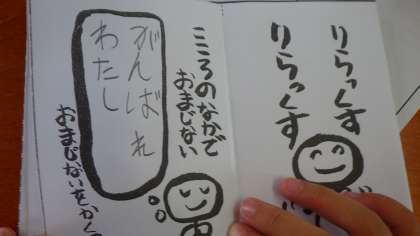 りらっくす
りらっくす
こころのなかで
おまじない
がんばれ
わたし
おまじないをかく